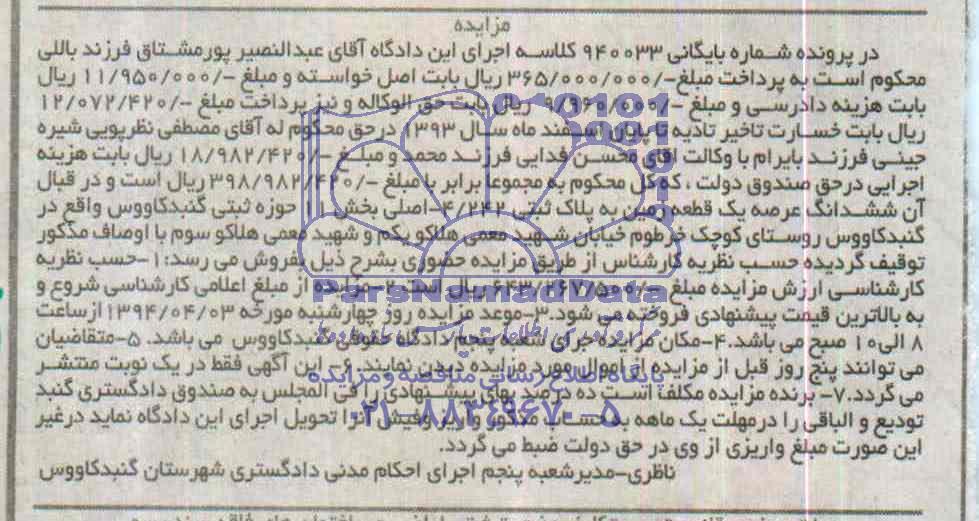 مزایده
در پرونده شماره بایگانی ۹۴۰۰۳۳ کلاسه اجرای این دادگاه آقای عبدالنصیر پورمشتاق فرزند باللی
محکوم است به پرداخت مبلغ-/۳۶۵/۰۰۰/۰۰۰ ریال بابت اصل خواسته و مبلغ -/۱۱/۹۵۰/۰۰۰ ریال
بابت هزینه دادرسی و مبلغ -/۹/۹۶۰/۰۰۰ ریال بابت حق الوکاله و نیز پرداخت مبلغ -/۱۲/۰۷۲/۴۲۰
ریال بابت خسارت تاخیر تادیه تا پایان اسفند ماه سال ۱۳۹۳ درحق محکوم له آقای مصطفی نظریویی شیره
جینی فرزند بایرام با وکالت اقای محسن فدایی فرزند محمد و مبلغ -/۱۸/۹۸۲/۴۲۰ ریال بابت هزینه
اجرایی درحق صندوق دولت ، که کل محکوم به مجموعا برابر با مبلغ -/۳۹۸/۹۸۲/۴۲۰ ریال است و در قبال
آن ششدانگ عرصه یک قطعه زمین به پلاک ثبتی ۴/۲۴۲-اصلی بخش حوزه ثبتی گنبدکاووس واقع در
گنبدکاووس روستای کوچک خرطوم خیابان شهید معمی هلاکو یکم و شهید معمی هلاکو سوم با اوصاف مذکور
توقیف گردیده حسب نظریه کارشناس از طریق مزایده حضوری بشرح ذیل بفروش می رسد:۱-حسب نظریه
کارشناسی ارزش مزایده مبلغ -/۶۴۳/۲۶۷/۵۰۰ ریال است.۲-مزایده از مبلغ اعلامی کارشناسی شروع و
به بالاترین قیمت پیشنهادی فروخته می شود.۳-موعد مزایده روز چهارشنبه مورخه ۱۳۹۴/۰۴/۰۳ ازساعت
۸ الی۱۰ صبح می باشد.۴-مکان مزایده اجرای شعبه پنجم دادگاه حقوقی گنبدکاووس می باشد. ۵-متقاضیان
می توانند پنج روز قبل از مزایده از اموال مورد مزایده دیدن نمایند. ۶- این آگهی فقط در یک نوبت منتشر
می گردد.۷- برنده مزایده مکلف است ده درصد بهای پیشنهادی را فی المجلس به صندوق دادگستری گنبد
تودیع و الباقی را درمهلت یک ماهه به حساب مذکور واریز وفیش آنرا تحویل اجرای این دادگاه نماید درغیر
این صورت مبلغ واریزی از وی در حق دولت ضبط می گردد.
ناظری-مدیرشعبه پنجم اجرای احکام مدنی دادگستری شهرستان گنبدکاووس
ParsNamadData
پایگاه اطلاع رسانی مناقصه و مزایده
۰۲۱-۸۸۳۴۹۶۷۰-۵